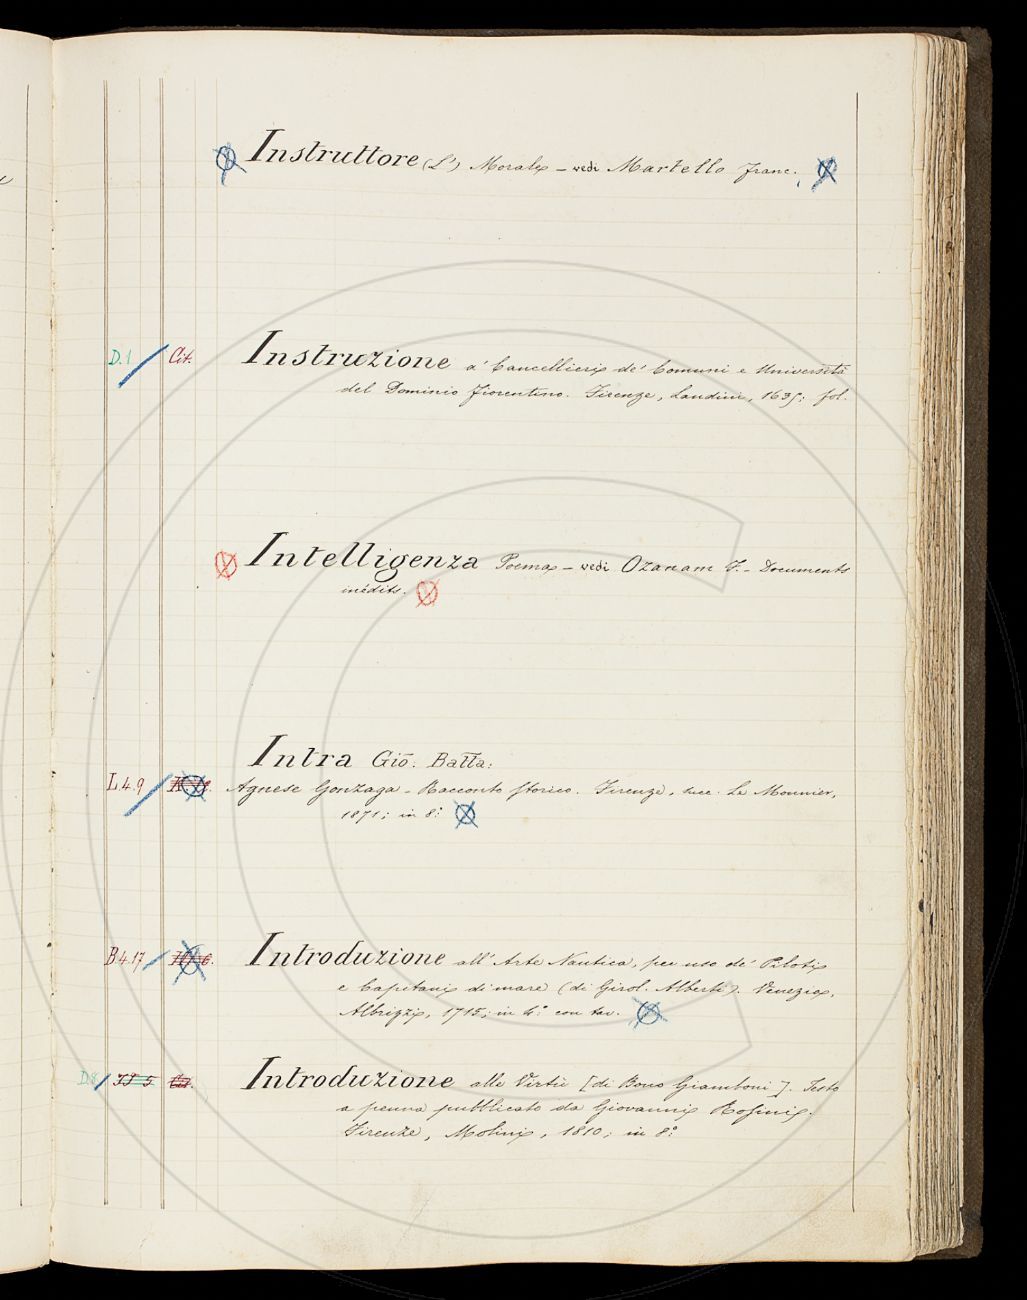 Instruttore (L') Morale - vedi Martello Franc.
D.1 Cit. Instruzione a' Cancellieri de' Comuni e Università
del Dominio Fiorentino. Firenze, Landini, 1635; fol.
Intelligenza Poema - vedi Ozanam F. - Documents
inédits.
Intra Gio: Batta:
L4.9 Agnese Gonzaga - Racconto storico. Firenze, succ. Le Monnier,
1871; in 8º
B4.17 Introduzione all'Arte Nautica, per uso de' Piloti
e Capitani di mare (di Girol. Alberti). Venezia,
Albrizzi, 1715; in 4º con tav.
D.8 Cit. Introduzione alle Virtù [di Bono Giamboni]. Testo
a penna pubblicato da Giovanni Rosini.
Firenze, Molini, 1810; in 8º